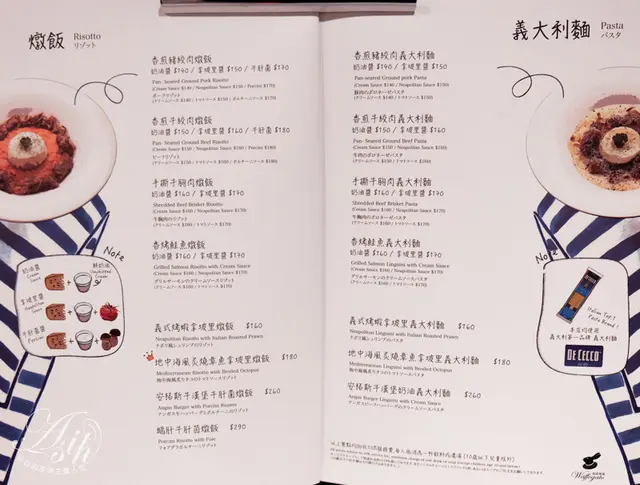 燉飯 Risotto
リゾット
香煎豬絞肉燉飯
奶油醬 $140 / 拿坡里醬 $150 / 牛肝菌 $170
Pan-Seared Ground Pork Risotto
(Cream Sauce $140 / Neapolitan Sauce $150 / Porcini $170)
ポークリゾット
(クリームソース $140 / トマトソース $150 / ポルチーニソース $170)
香煎牛絞肉燉飯
奶油醬 $150 / 拿坡里醬 $160 / 牛肝菌 $180
Pan-Seared Ground Beef Risotto
(Cream Sauce $150 / Neapolitan Sauce $160 / Porcini $180)
ビーフリゾット
(クリームソース $150 / トマトソース $160 / ポルチーニソース $180)
手撕牛胸肉燉飯
奶油醬 $160 / 拿坡里醬 $170
Shredded Beef Brisket Risotto
(Cream Sauce $160 / Neapolitan Sauce $170)
牛胸肉のリゾット
(クリームソース $160 / トマトソース $170)
香烤鮭魚燉飯
奶油醬 $160 / 拿坡里醬 $170
Grilled Salmon Risotto with Cream Sauce
(Cream Sauce $160 / Neapolitan Sauce $170)
グリルサーモンのクリームソースリゾット
(クリームソース $160 / トマトソース $170)
義式烤蝦拿坡里燉飯 $160
Neapolitan Risotto with Italian Roasted Prawn
地中海風炙燒章魚拿坡里燉飯 $180
Mediterranean Risotto with Broiled Octopus
地中海風炙りタコのトマトソースリゾット
安格斯牛漢堡牛肝菌燉飯 $260
Angus Burger with Porcini Risotto
鴨肝牛肝菌燉飯 $290
Porcini Risotto with Foie
フォアグラポルチーニリゾット
Note
奶油醬
Cream Sauce
鮮奶油
拿坡里醬
Neapolitan Sauce
牛肝菌醬
Porcini
義大利麵 Pasta
パスタ
香煎豬絞肉義大利麵
奶油醬 $140 / 拿坡里醬 $150
Pan-seared Ground pork Pasta
(Cream Sauce $140 / Neapolitan Sauce $150)
豚肉のボロネーゼパスタ
(クリームソース $140 / トマトソース $150)
香煎牛絞肉義大利麵
奶油醬 $150 / 拿坡里醬 $160
Pan-Seared Ground Beef Pasta
(Cream Sauce $150 / Neapolitan Sauce $160)
牛肉のボロネーゼパスタ
(クリームソース $150 / トマトソース $160)
手撕牛胸肉義大利麵
奶油醬 $160 / 拿坡里醬 $170
Shredded Beef Brisket Pasta
(Cream Sauce $160 / Neapolitan Sauce $170)
牛胸肉のパスタ
(クリームソース $160 / トマトソース $170)
香烤鮭魚義大利麵
奶油醬 $160 / 拿坡里醬 $170
Grilled Salmon Linguini with Cream Sauce
(Cream Sauce $160 / Neapolitan Sauce $170)
グリルサーモンのクリームソースパスタ
(クリームソース $160 / トマトソース $170)
義式烤蝦拿坡里義大利麵 $160
Neapolitan Linguini with Italian Roasted Prawn
地中海風炙燒章魚拿坡里義大利麵 $180
Mediterranean Linguini with Broiled Octopus
地中海風炙りタコのトマトソースパスタ
安格斯牛漢堡奶油義大利麵 $260
Angus Burger Linguini with Cream Sauce
Note
Italian Top 1
Pasta Brand!
本店均使用
義大利第一品牌 義大利麵
DE CECCO
Wafflogue